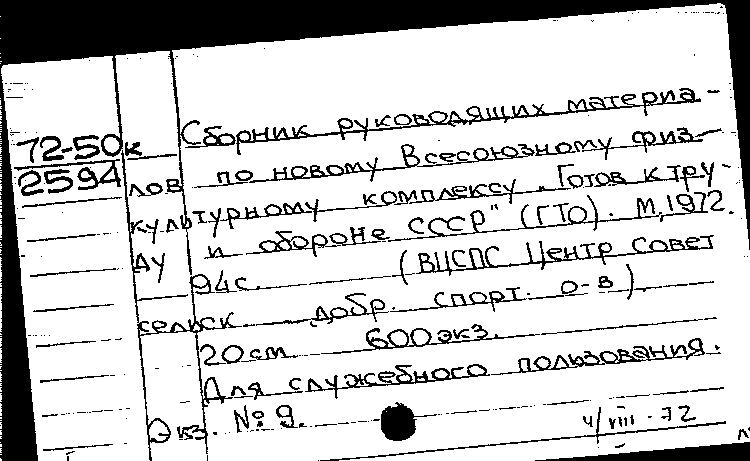 72-50к
2594
Сборник руководящих материа-
лов по новому Всесоюзному физ-
культурному комплексу „Готов к тру-
ду и обороне СССР" (ГТО). М, 1972.
94с. (ВЦСПС Центр Совет
сельск. добр. спорт. о-в).
20 см. 600 экз.
Для служебного пользования.
Экз. № 9.
4/VIII-72